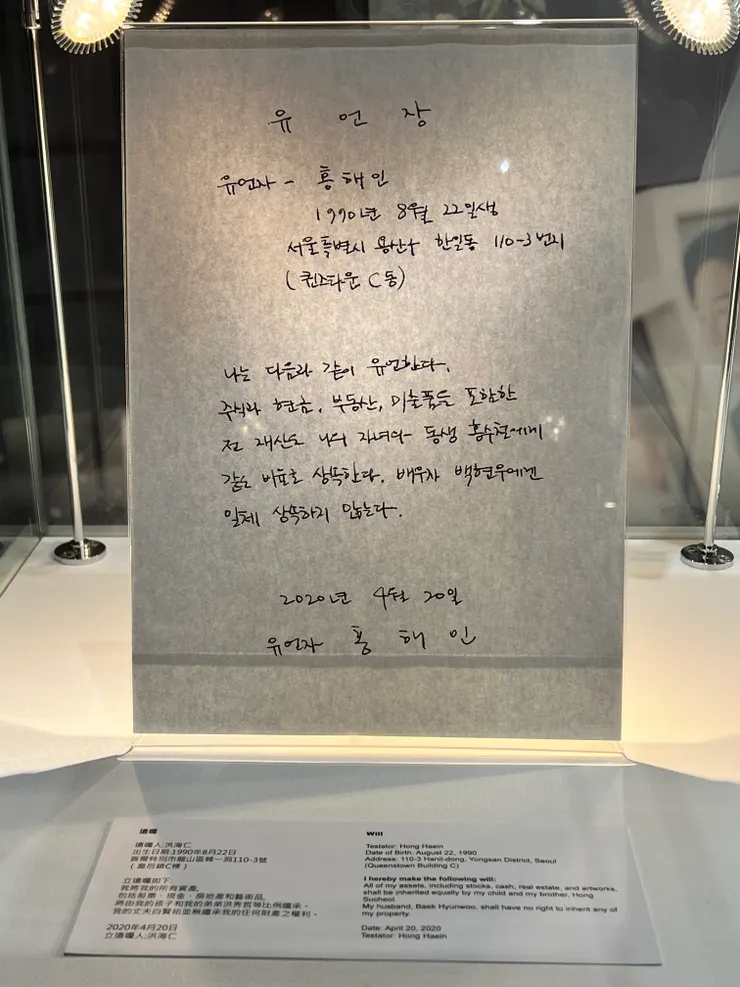 유 언 장
유언자 - 홍 해 인
1990년 8월 22일생
서울특별시 용산구 한일동 110-3번지
(퀸즈타운 C동)
나는 다음과 같이 유언한다.
주식과 현금, 부동산, 미술품을 포함한
전 재산을 나의 자녀와 동생 홍수철에게
같은 비율로 상속한다. 배우자 백현우에겐
일체 상속하지 않는다.
2020년 4월 20일
유언자 홍 해 인
遺囑
遺囑人:洪海仁
出生日期:1990年8月22日
首爾特別市龍山區韓一洞110-3號
(皇后鎮C棟)
立遺囑如下
我將我的所有資產,
包括股票、現金、房地產和藝術品,
將由我的孩子和我的弟弟洪秀哲等比例繼承。
我的丈夫白賢祐並無繼承我的任何財產之權利。
2020年4月20日
立遺囑人:洪海仁
Will
Testator: Hong Haein
Date of Birth: August 22, 1990
Address: 110-3 Hanil-dong, Yongsan District, Seoul
(Queenstown Building C)
I hereby make the following will:
All of my assets, including stocks, cash, real estate, and artworks,
shall be inherited equally by my child and my brother, Hong
Sucheol.
My husband, Baek Hyunwoo, shall have no right to inherit any of
my property.
Date: April 20, 2020
Testator: Hong Haein